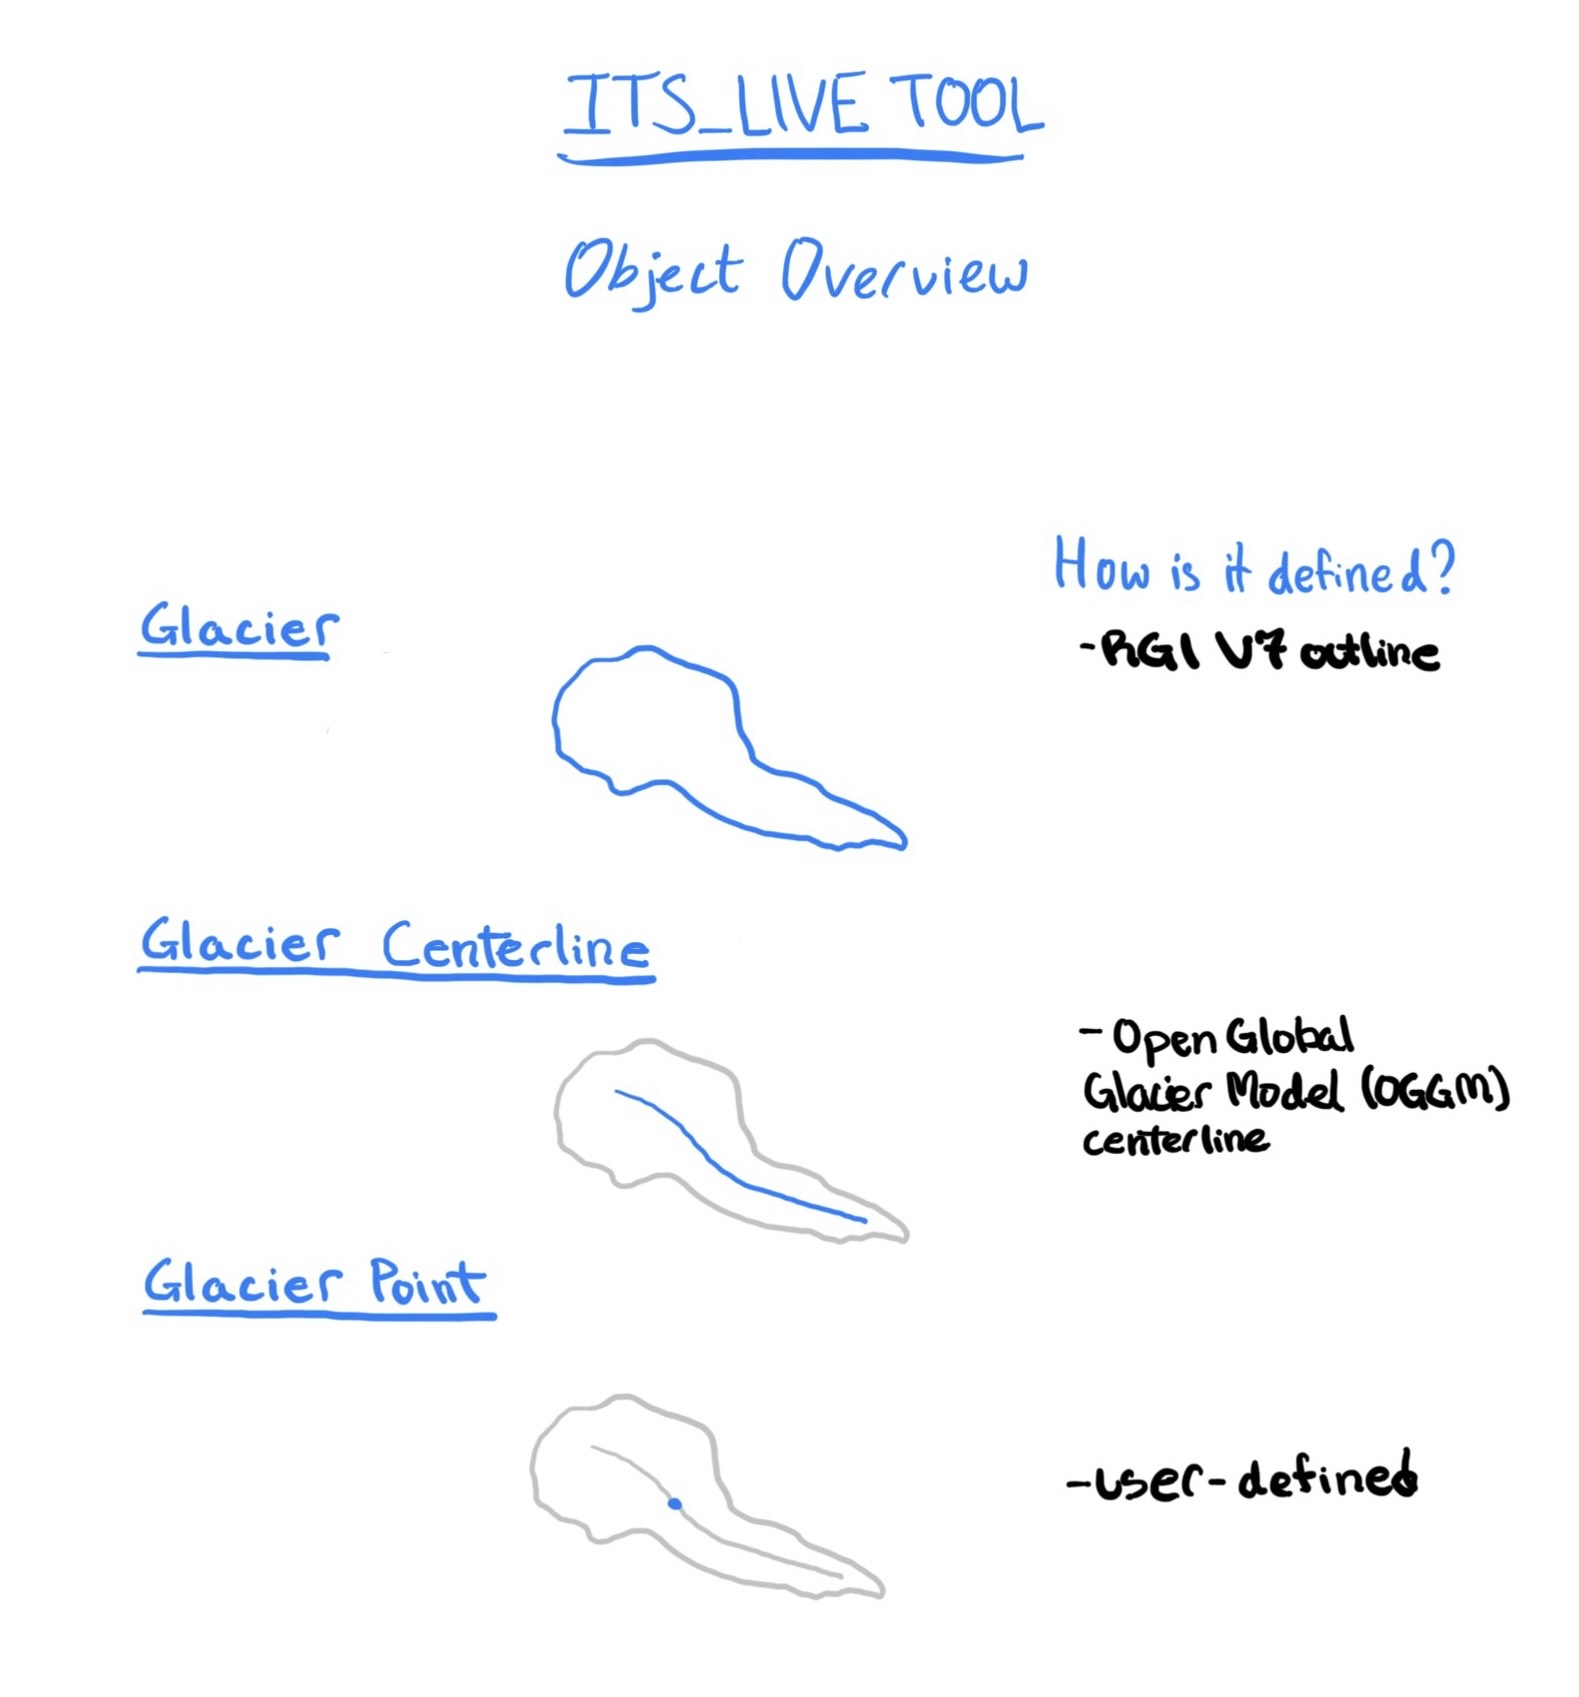 ITS_LIVE TOOL
Object Overview
How is it defined?
Glacier
-RGI V7 outline
Glacier Centerline
- Open Global
Glacier Model (OGGM)
centerline
Glacier Point
-user-defined